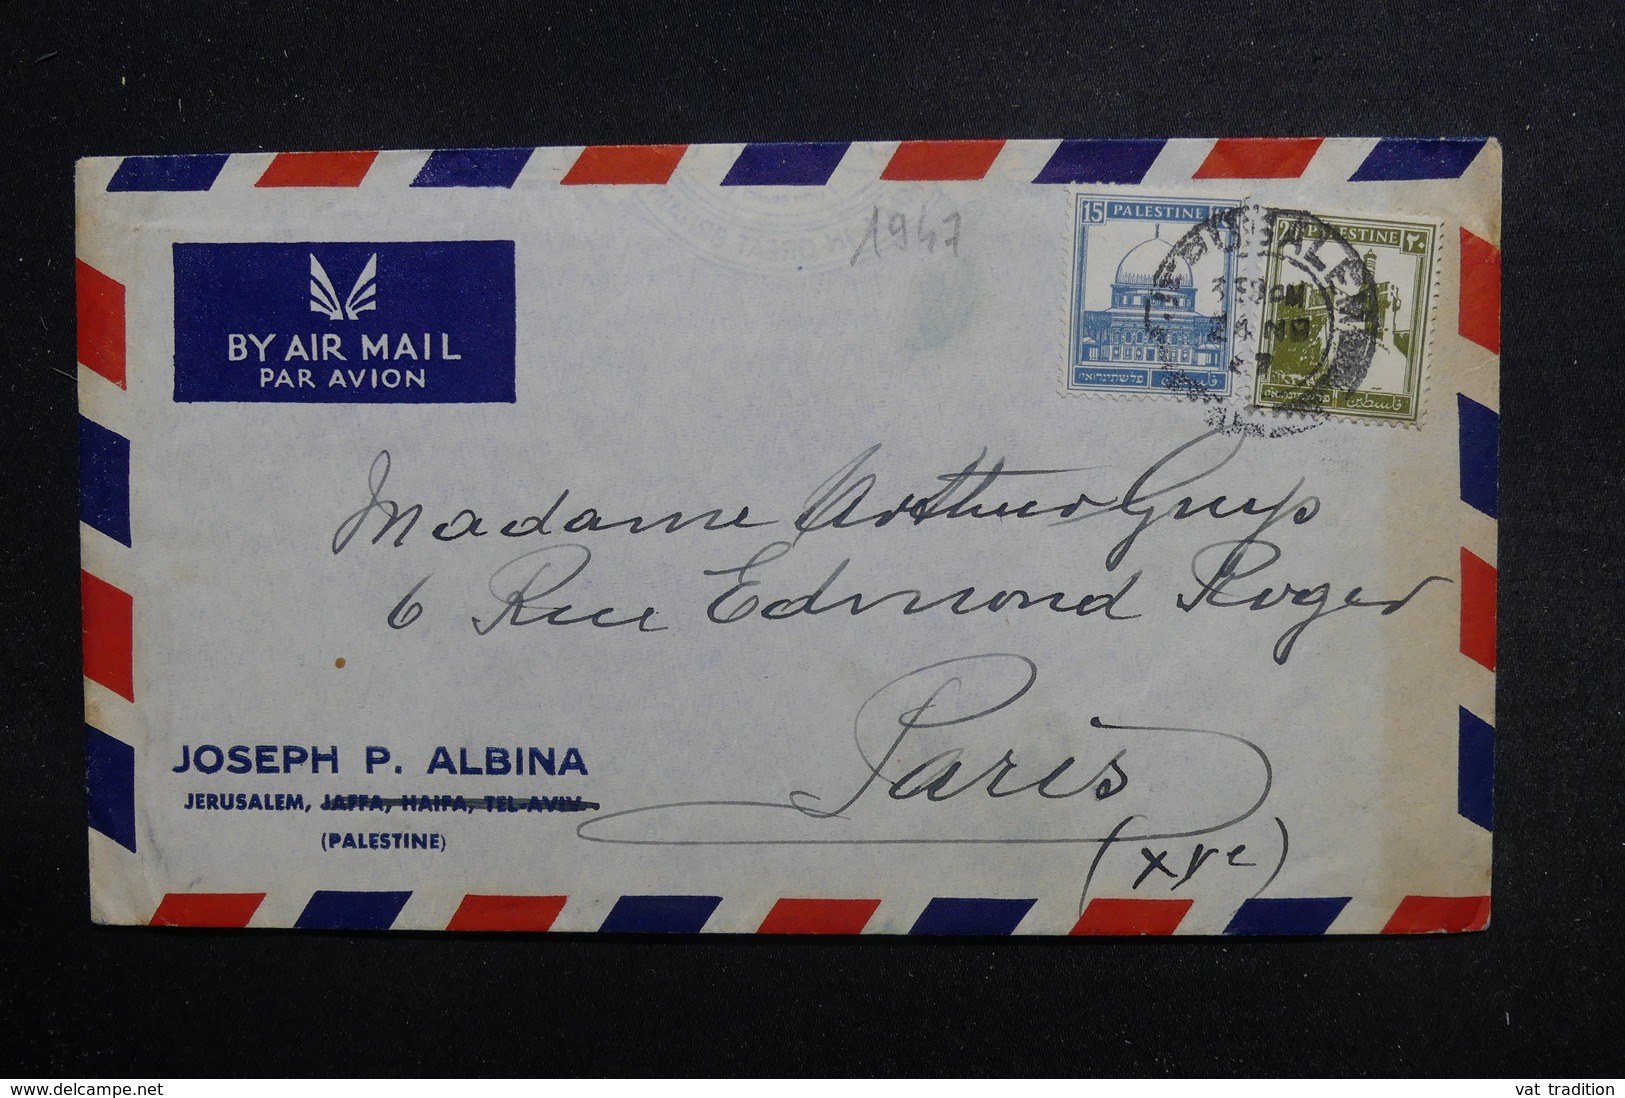 1947
15 PALESTINE
פלשתינה־א״י فلسطين
PALESTINE ٢٠
פלשתינה־א״י فلسطين
JERUSALEM
BY AIR MAIL
PAR AVION
Madame Arthur
6 Rue Edmond Roger
Paris
(XVe)
JOSEPH P. ALBINA
JERUSALEM, JAFFA, HAIFA, TEL-AVIV
(PALESTINE)
www.delcampe.net
vat_tradition